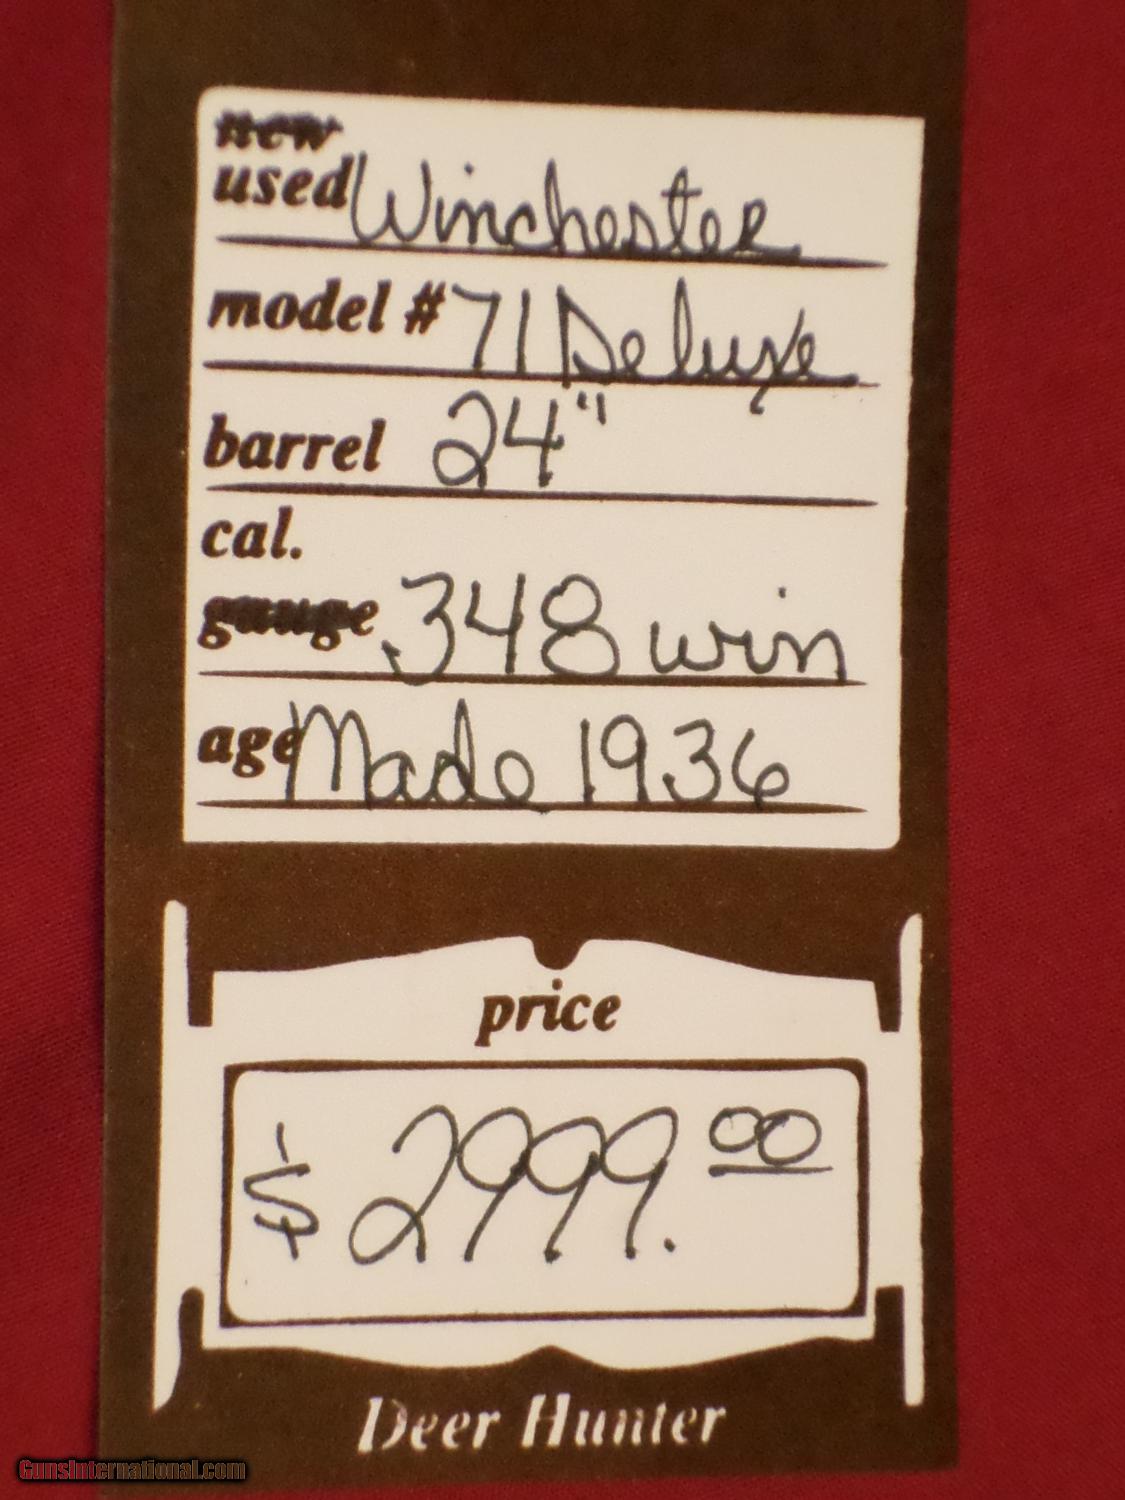 new
used Winchester
model # 71 Deluxe
barrel 24"
cal.
gauge .348 win
age Made 1936
price
$2999.00
Deer Hunter
GunsInternational.com